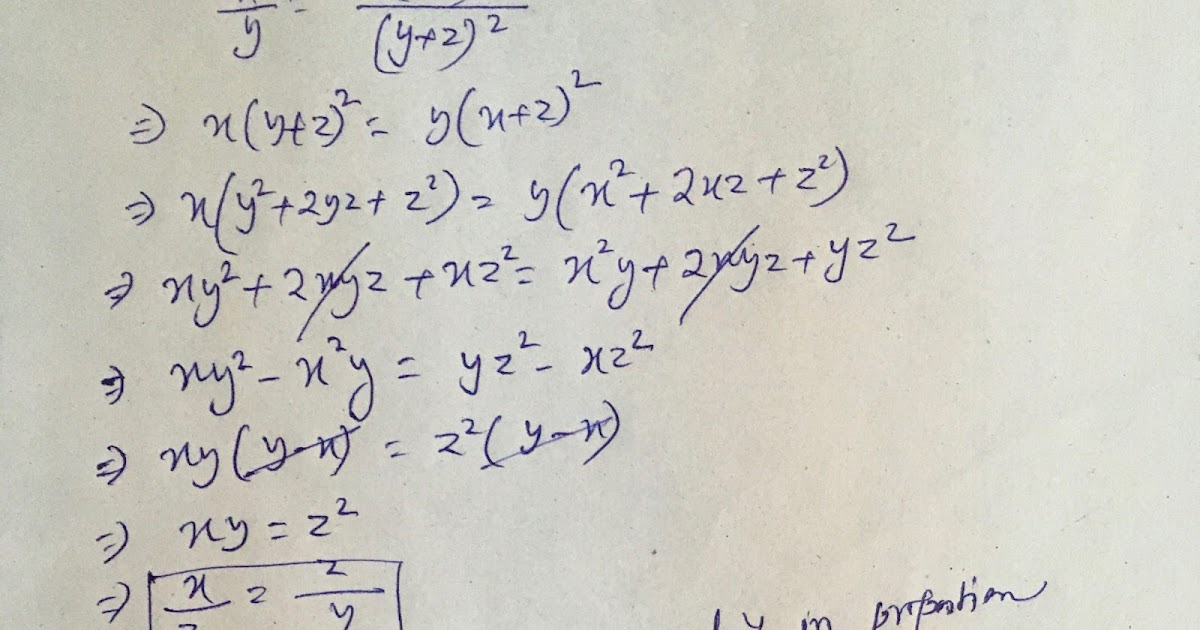 y = (y+z)²
⇒ x(y+z)² = y(x+z)²
⇒ x(y²+2yz+z²) = y(x²+2xz+z²)
⇒ xy²+2xyz+xz² = x²y+2xyz+yz²
⇒ xy²-x²y = yz²-xz²
⇒ xy(y-x) = z²(y-x)
⇒ xy = z²
⇒ x = z/y
y in